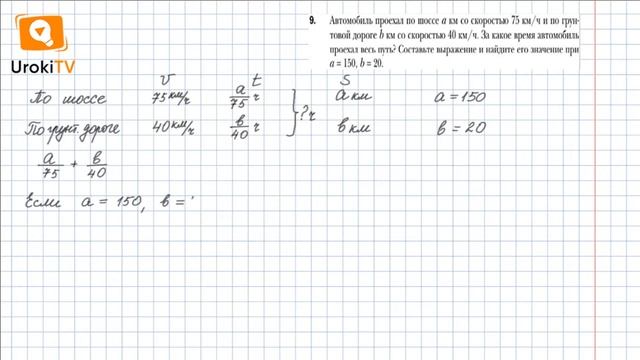 UrokiTV
9. Автомобиль проехал по шоссе a км со скоростью 75 км/ч и по грун-
товой дороге b км со скоростью 40 км/ч. За какое время автомобиль
проехал весь путь? Составьте выражение и найдите его значение при
a = 150, b = 20.
v t S
По шоссе 75 км/ч a/75 ч a км a = 150
По грунт. дороге 40 км/ч в/40 ч } ? ч в км в = 20
a/75 + в/40
Если a = 150, в =